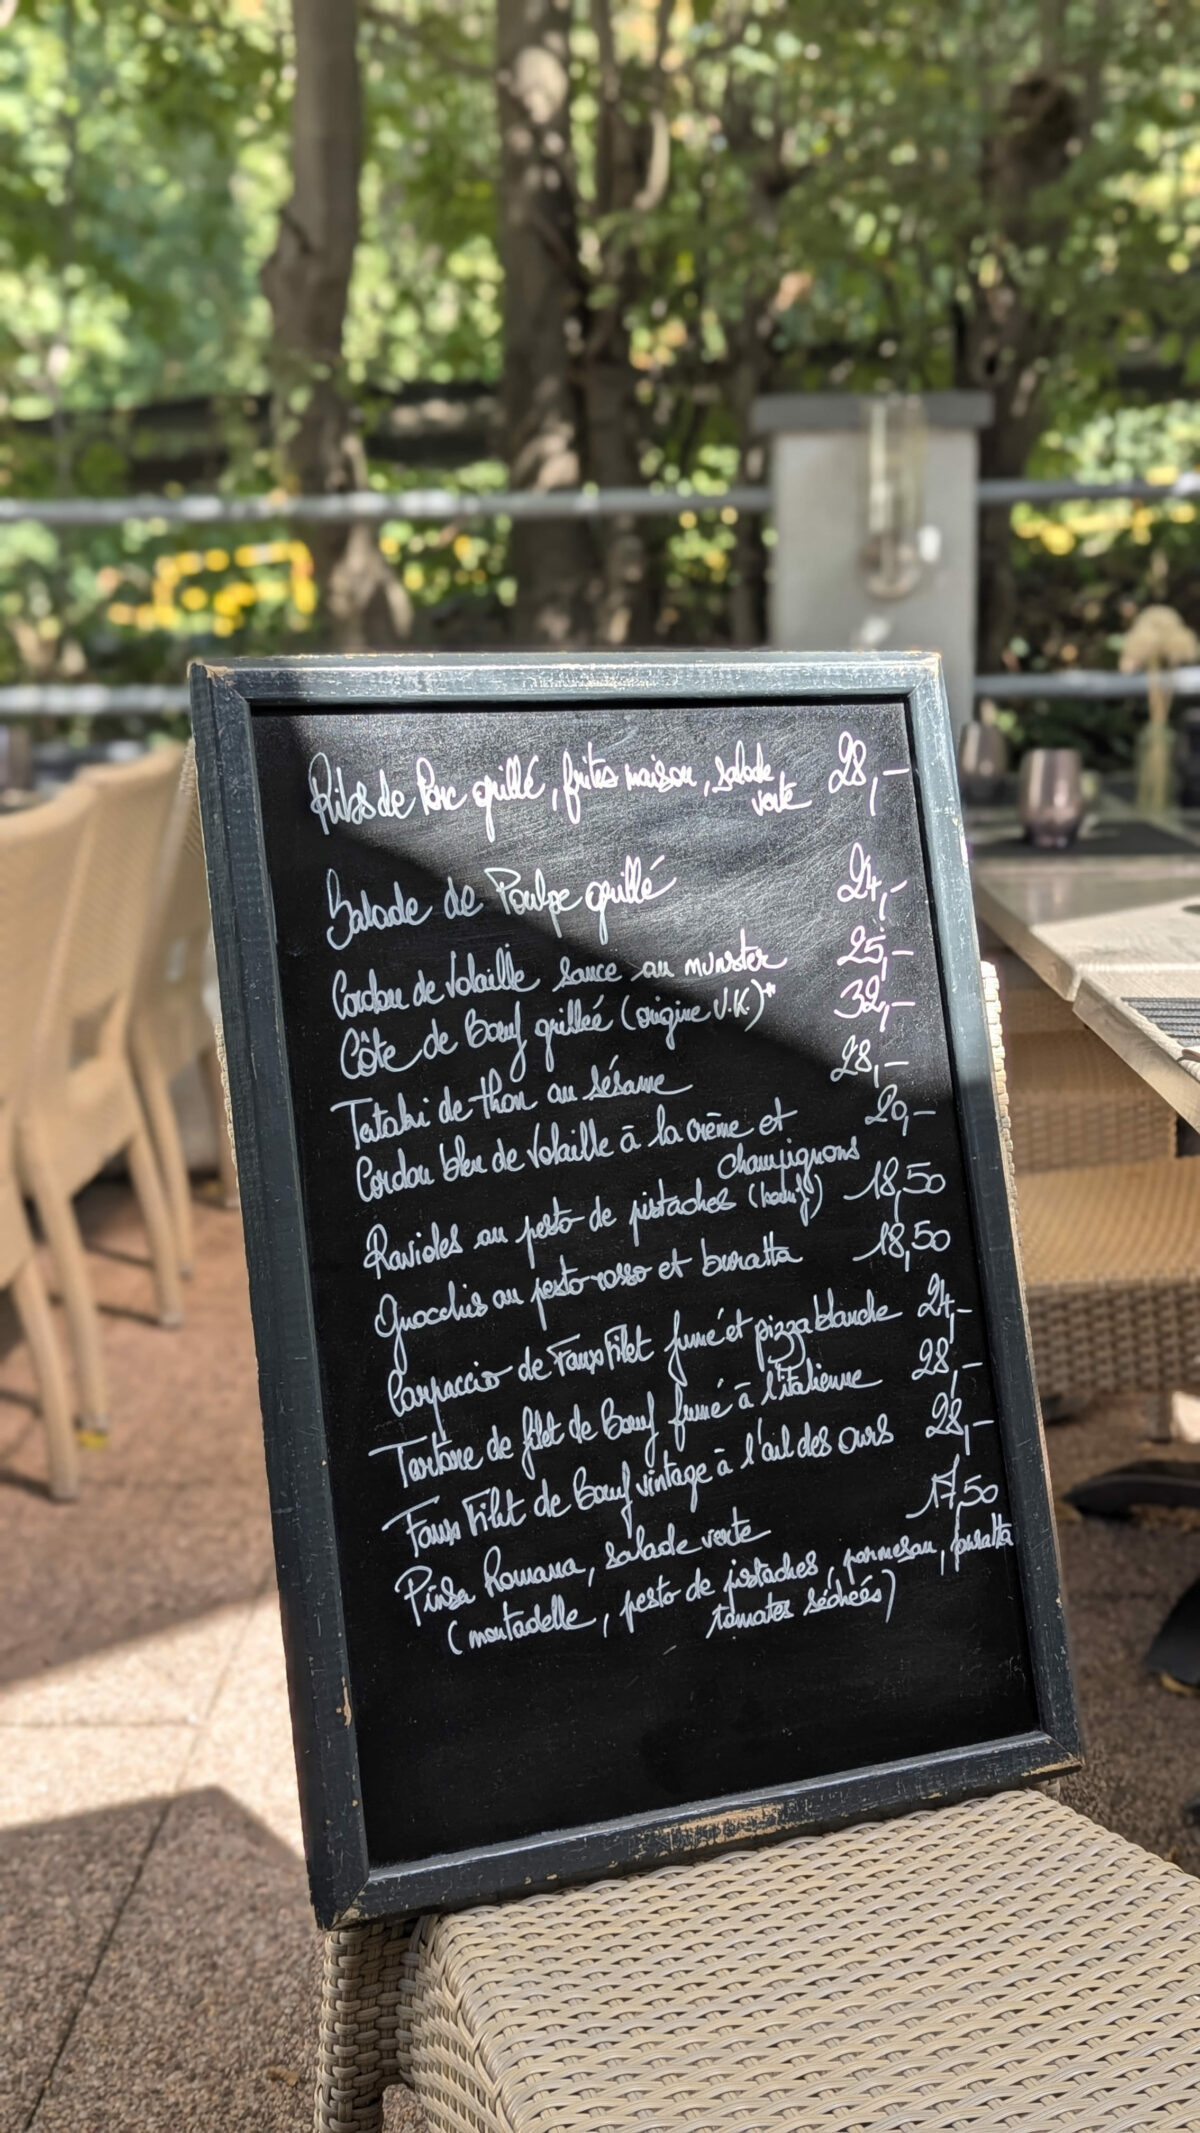 Ribs de Porc grillé, frites maison, salade 28,-
verte
Salade de Poulpe grillé 24,-
Cordon de Volaille sauce au munster 25,-
Côte de Boeuf grillée (origine U.K.)* 32,-
Tataki de thon au sésame 28,-
Cordon bleu de Volaille à la crème et 20,-
champignons
Ravioles au pesto de pistaches (boeuf) 18,50
Gnocchis au pesto rosso et buratta 18,50
Carpaccio de Faux Filet fumé et pizza blanche 24,-
Tartare de filet de Boeuf fumé à l'italienne 28,-
Faux Filet de Boeuf vintage à l'ail des ours 28,-
Pinsa Romana, salade verte 17,50
(mortadelle, pesto de pistaches, parmesan, buratta
tomates séchées)